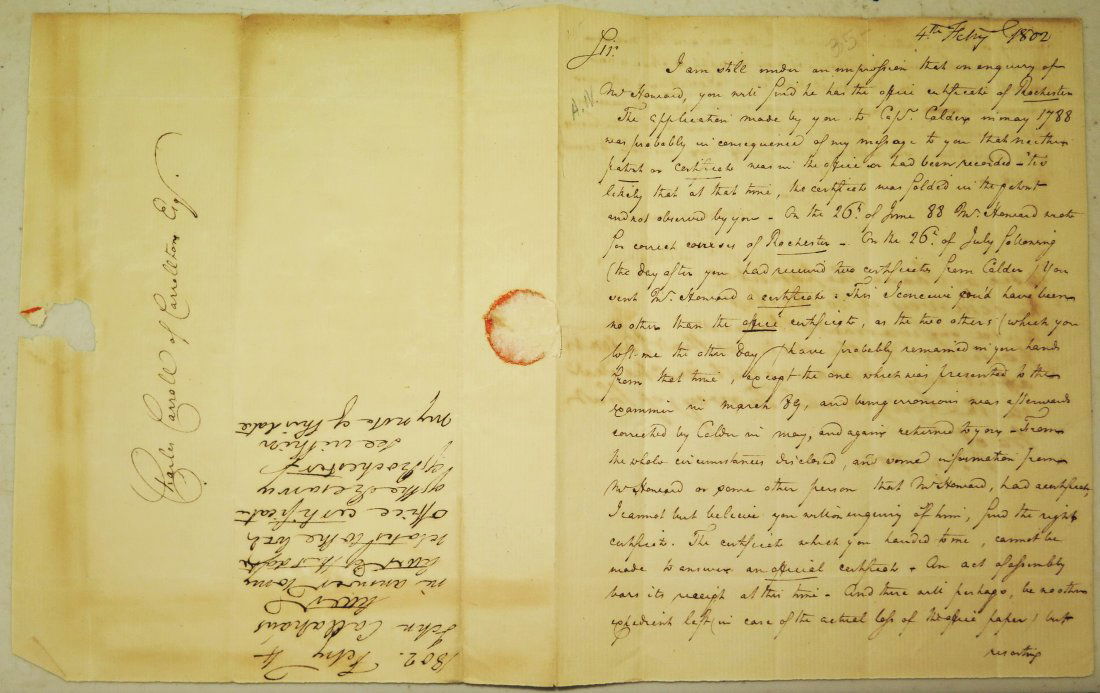 4th Febry 1802
35-
A.N.
Sir.
I am still under an impression that on enquiry of
Mr Howard, you will find he has the office certificate of Rochester
The application made by you to Capt. Calder in may 1788
was probably in consequence of my message to you that neither
patent or certificate was in the office or had been recorded – tis
likely that at that time, the certificate was folded in the patent
and not observed by you – On the 26th of June 88 Mr. Howard wrote
for correct courses of Rochester – On the 26th of July following
(the day after you had received two certificates from Calder) You
sent Mr. Howard a certificate: This I conceive cou'd have been
no other than the office certificate, as the two others (which you
left me the other day) have probably remained in your hands
from that time, except the one which was presented to the
examiner in march 89, and being erronious was afterwards
corrected by Calder in may, and again returned to you – From
the whole circumstances disclosed, and some information from
Mr Howard or some other person that Mr Howard, had a certificate,
I cannot but believe you will on enquiry of him, find the right
certificate. The certificate which you handed to me, cannot be
made to answer an official certificate – An act of assembly
bars its receipt at this time – And there will perhaps, be no other
expedient left (in case of the actual loss of the office paper) but
resorting
Charles Carroll of Carrollton Esqr.
1802. Febry 4
John Callahan's
letter
in answer to my
letter of
relative to the
office certificate
of the Resurvey
of Rochester
see within
my note of this date